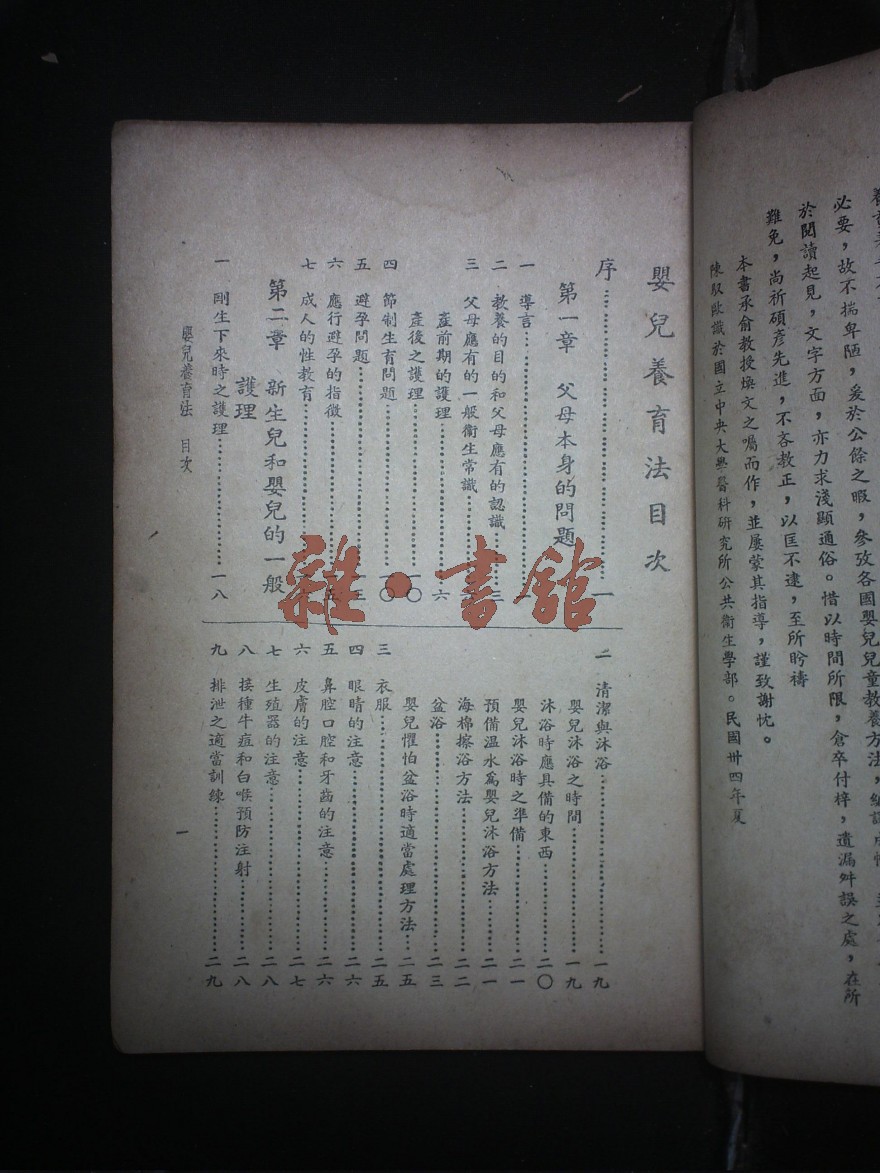 必要，故不揣卑陋，爰於公餘之暇，參攷各國嬰兒兒童教養方法，編
於閱讀起見，文字方面，亦力求淺顯通俗。惜以時間所限，倉卒付梓，遺漏舛誤之處，在所
難免，尚祈碩彥先進，不吝教正，以匡不逮，至所盻禱
本書承俞教授煥文之囑而作，並屢蒙其指導，謹致謝忱。
陳馭歐識於國立中央大學醫科研究所公共衛生學部。民國卅四年夏
嬰兒養育法目次
序……一
第一章 父母本身的問題
一 導言……
二 教養的目的和父母應有的認識……三
三 父母應有的一般衛生常識……
產前期的護理……六
產後之護理……一〇
四 節制生育問題……一〇
五 避孕問題……一三
六 應行避孕的指徵……一五
七 成人的性教育……
第二章 新生兒和嬰兒的一般
護理
一 剛生下來時之護理……一八
二 清潔與沐浴……一九
嬰兒沐浴之時間……一九
沐浴時應具備的東西……二〇
嬰兒沐浴時之準備……二一
預備温水爲嬰兒沐浴方法……二一
海棉擦浴方法……二二
盆浴……二三
嬰兒懼怕盆浴時適當處理方法……二五
三 衣服……二五
四 眼睛的注意……二六
五 鼻腔口腔和牙齒的注意……二六
六 皮膚的注意……二七
七 生殖器的注意……二八
八 接種牛痘和白喉預防注射……二八
九 排泄之適當訓練……二九
嬰兒養育法 目次
一
雜·書館